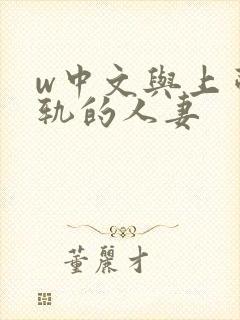 w中文與上
軌的人妻
董麗才